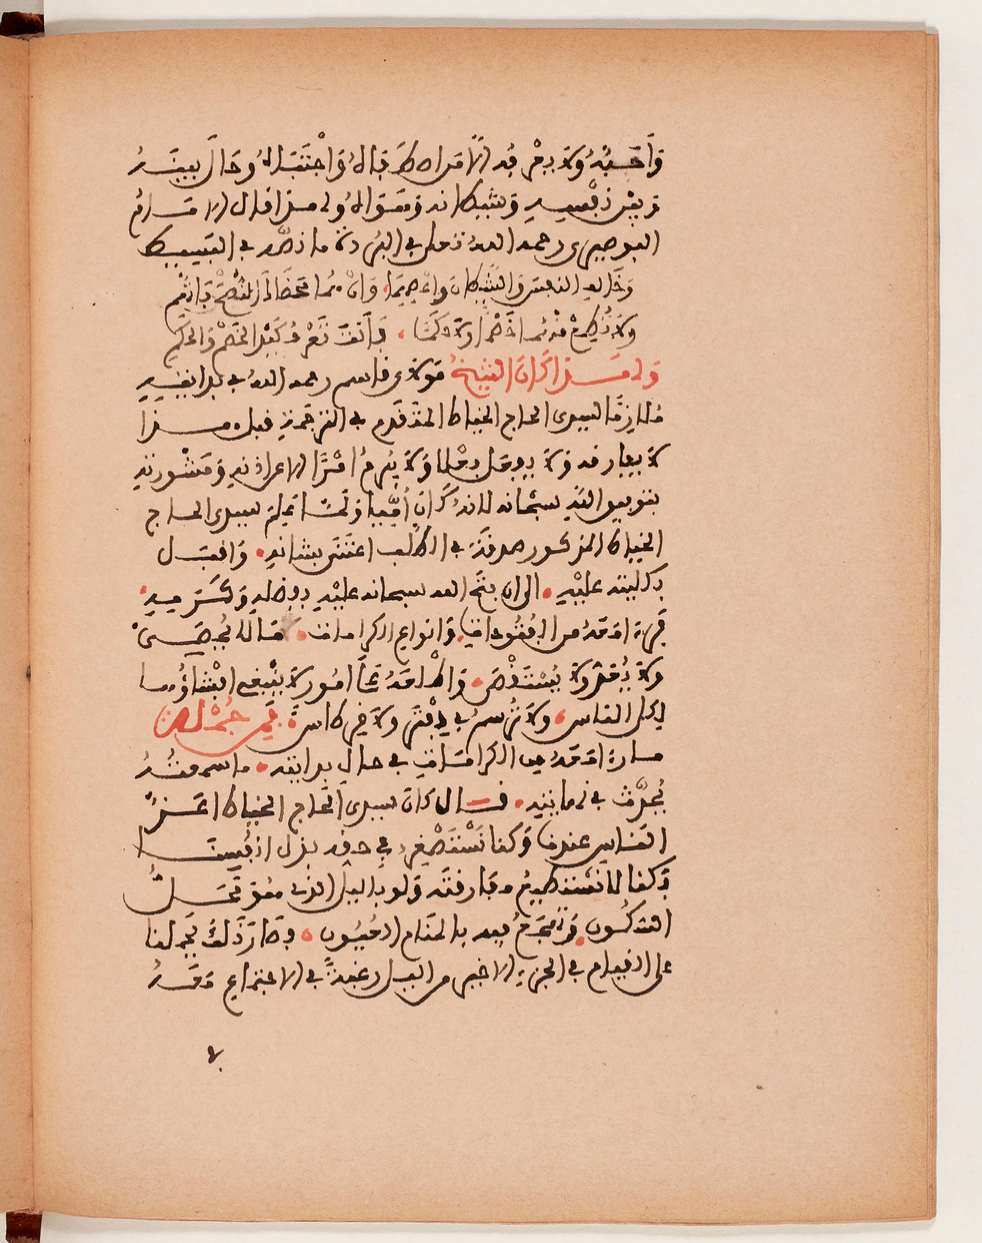 وَأَحَبَّهُ وَلاَ يعْرِفُه إلاَّ من اصطفاهُ وَاجْتَبَاهُ وحَالَ بينَهُ
وَبَيْنَ نَفْسِهِ وَشيطانه وَهَوَاهُ ولهذا قال الامَامُ
البوصيري رحمه الله تعلى في البُردة ما نصُّه في البسيط
وَخَالِفِ النفسَ وَالشَّيطانَ وَاعْصِهِمَا، وَإنْ هُما مَحَضَاكَ النُّصْحَ فَاتَّهِمِ
وَلاَ تُطِعْ مِنْهُمَا خَصْمًا وَلاَ حَكَمًا، فَأَنْتَ تَعْرِفُ كَيْدَ الخَصْمِ وَالحَكَمِ
وَلهَذا كَانَ الشيخُ مَوْلاَي قاسم رحمه اللهُ في بدايَتِهِ
مُلاَزِمًا لسيدي الحاج الخياط المتقدِّمِ في الترجَمةِ قبل هذا
لاَ يفارقه وَلاَ يفعَل فِعْلا وَلاَ يُبرمُ أمْرًا إلا عن اذنِهِ وَمَشُورَتِهِ
بتوفيق اللهِ سبْحَانه لانهُ كَانَ أُمِّيًا وَلَمَّا عَلِمَ سيدي الحاج
الخياط المذكور صدقَهُ في الطلب اعتَنَى بشأنهِ، وَاقبَل
بكليته عليْهِ، الى ان فتَحَ الله سبحانه عليْهِ بفضلهِ وَكَرَمِهِ،
فَرَءا معَهُ من الفُتُوحاتِ، وَانواع الكرامات، مَا لا يُحْصَى
وَلاَ يُعَدُّ وَلاَ يُسْتَقْصَى، وَاطْلَعَهُ عَلَى أمُور لاَ ينْبَغي افْشَاؤُهَا
لِكل الناس، وَلاَ تُرْسَمُ في دِفْتَرٍ وَلاَ في كاس، فَمِن جُمْلةِ
ما رءاه معَهُ من الكرَامَات في حال بدايته، ما سمعتُهُ
يُحَدِّثُ به في نهايتِهِ، قَال كان سيدي الحَاج الخياط اعَزَّ
الناس عندنا وَكنا نَسْتَصْغِرُ في حقه بذل انفُسِنَا
وَكنا لا نسْتَطيعُ مفارقته وَلو بالليل الذي هُو مَحَلُّ
السُّكُون، وَتهْجَعُ فيه بالمنام العُيُون، وَصَارَ ذَلِكَ يحملنا
على القيام في الجزءِ الاخير من الليل رغبةً في الاجتماع مَعَهُ